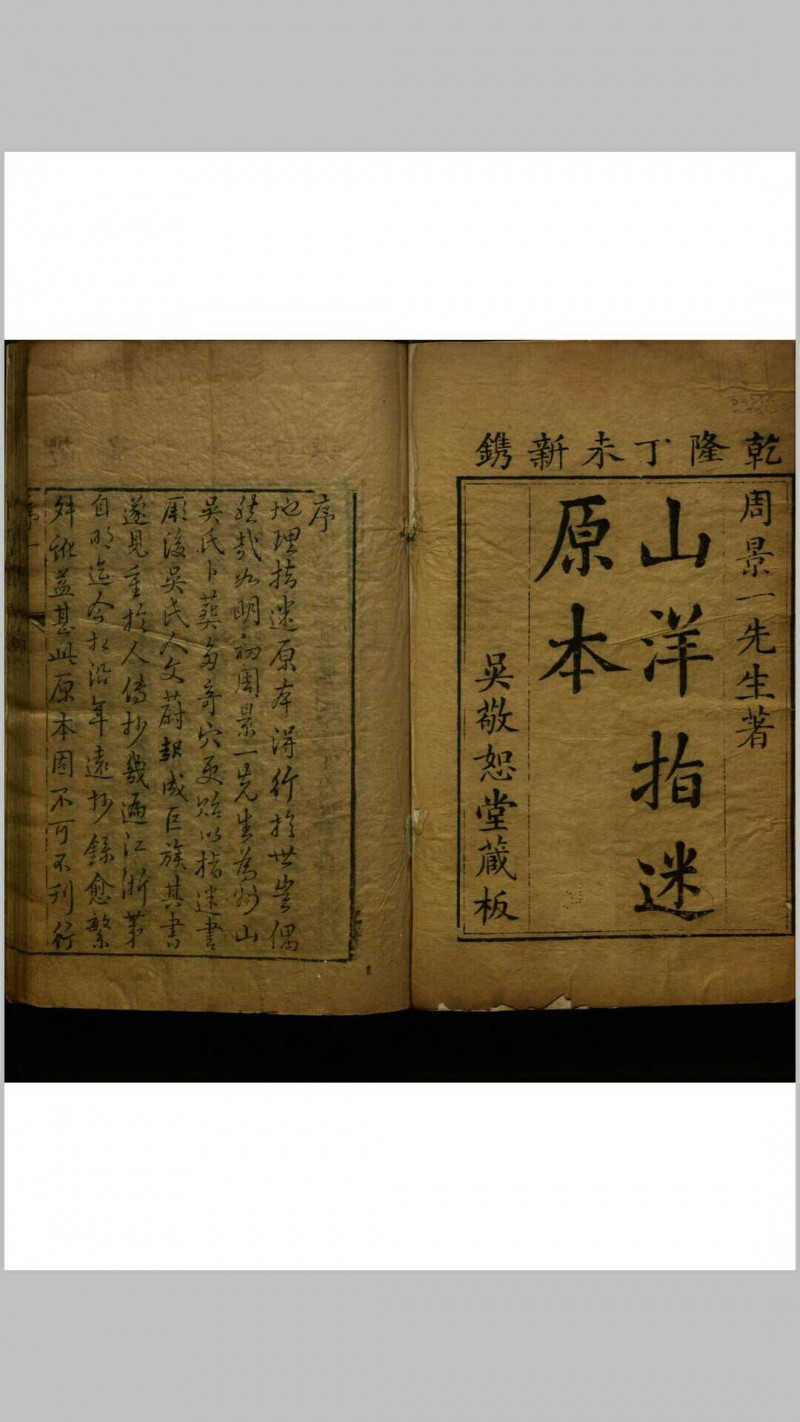 乾隆丁未新鐫
周景一先生著
山洋指迷
原本
吳敬恕堂藏板
序
地理指迷原本得行於世豈偶
然哉如明初周景一先生為妙山
吳氏卜葬多奇穴更貽以指迷書
厥後吳氏人文蔚起成巨族其書
遂見重於人傳抄幾遍江浙第
自明迄今相沿年遠抄錄愈繁
舛訛益甚此原本固不可不刊行